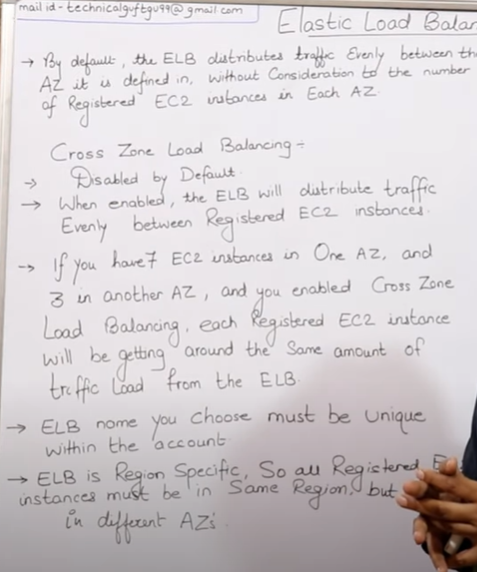 mail id - technicalguftgu99@gmail.com
Elastic Load Balan
→ By default, the ELB distributes traffic Evenly between the
AZ it is defined in, without Consideration to the number
of Registered EC2 instances in Each AZ.
Cross Zone Load Balancing :-
→ Disabled by Default.
→ When enabled, the ELB will distribute traffic
Evenly between Registered EC2 instances.
→ If you have 7 EC2 instances in One AZ, and
3 in another AZ, and you enabled Cross Zone
Load Balancing, each Registered EC2 instance
will be getting around the Same amount of
traffic Load from the ELB.
→ ELB name you Choose must be Unique
within the account.
→ ELB is Region Specific, So all Registered E
instances must be in Same Region, but
in different AZ's.